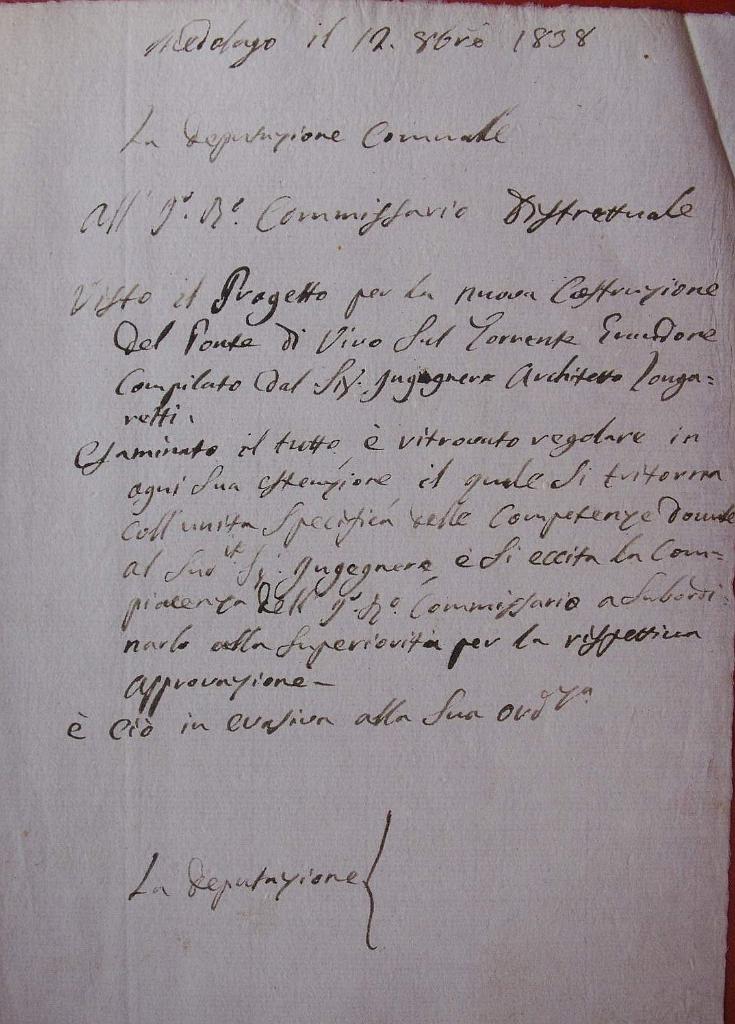 Medolago il 12. 8bre 1838
La Deputazione Comunale
All' I.º R.º Commissario Distrettuale
Visto il Progetto per la nuova Costruzione
Del Ponte di Vivo Sul Torrente
Compilato dal Sig. Ingegnere Architetto Longa=
retti.
Esaminato il tutto, è ritrovato regolare in
ogni Sua estenzione, il quale Si ritorna
coll'unita Specifica delle Competenze Dovute
al Sud.to Sig. Ingegnere, e Si eccita la Com=
piacenza Dell' I.º R.º Commissario a Subordi=
narlo alla Superiorità per la rispettiva
Approvazione –
è Ciò in evasiva alla Sua Ord.za
La Deputazione